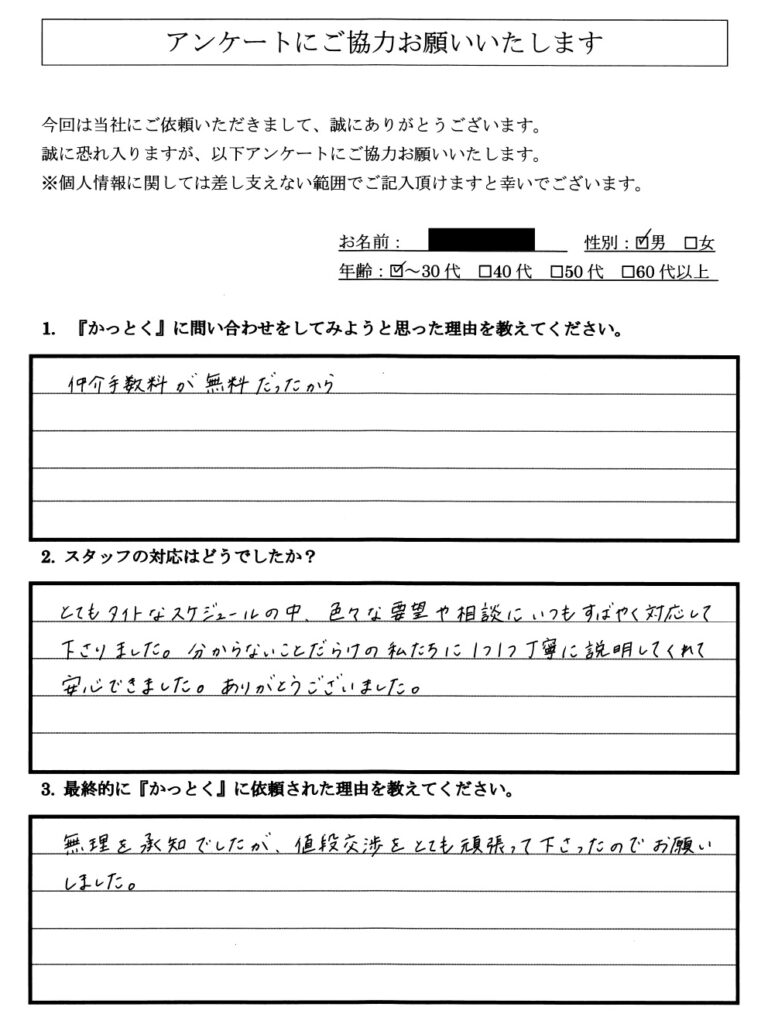 アンケートにご協力お願いいたします
今回は当社にご依頼いただきまして、誠にありがとうございます。
誠に恐れ入りますが、以下アンケートにご協力お願いいたします。
※個人情報に関しては差し支えない範囲でご記入頂けますと幸いでございます。
お名前： 性別：☑男 □女
年齢：☑～30代 □40代 □50代 □60代以上
1. 『かっとく』に問い合わせをしてみようと思った理由を教えてください。
仲介手数料が無料だったから
2. スタッフの対応はどうでしたか？
とてもタイトなスケジュールの中、色々な要望や相談にいつもすばやく対応して
下さりました。分からないことだらけの私たちに1つ1つ丁寧に説明してくれて
安心できました。ありがとうございました。
3. 最終的に『かっとく』に依頼された理由を教えてください。
無理を承知でしたが、値段交渉をとても頑張って下さったのでお願い
しました。